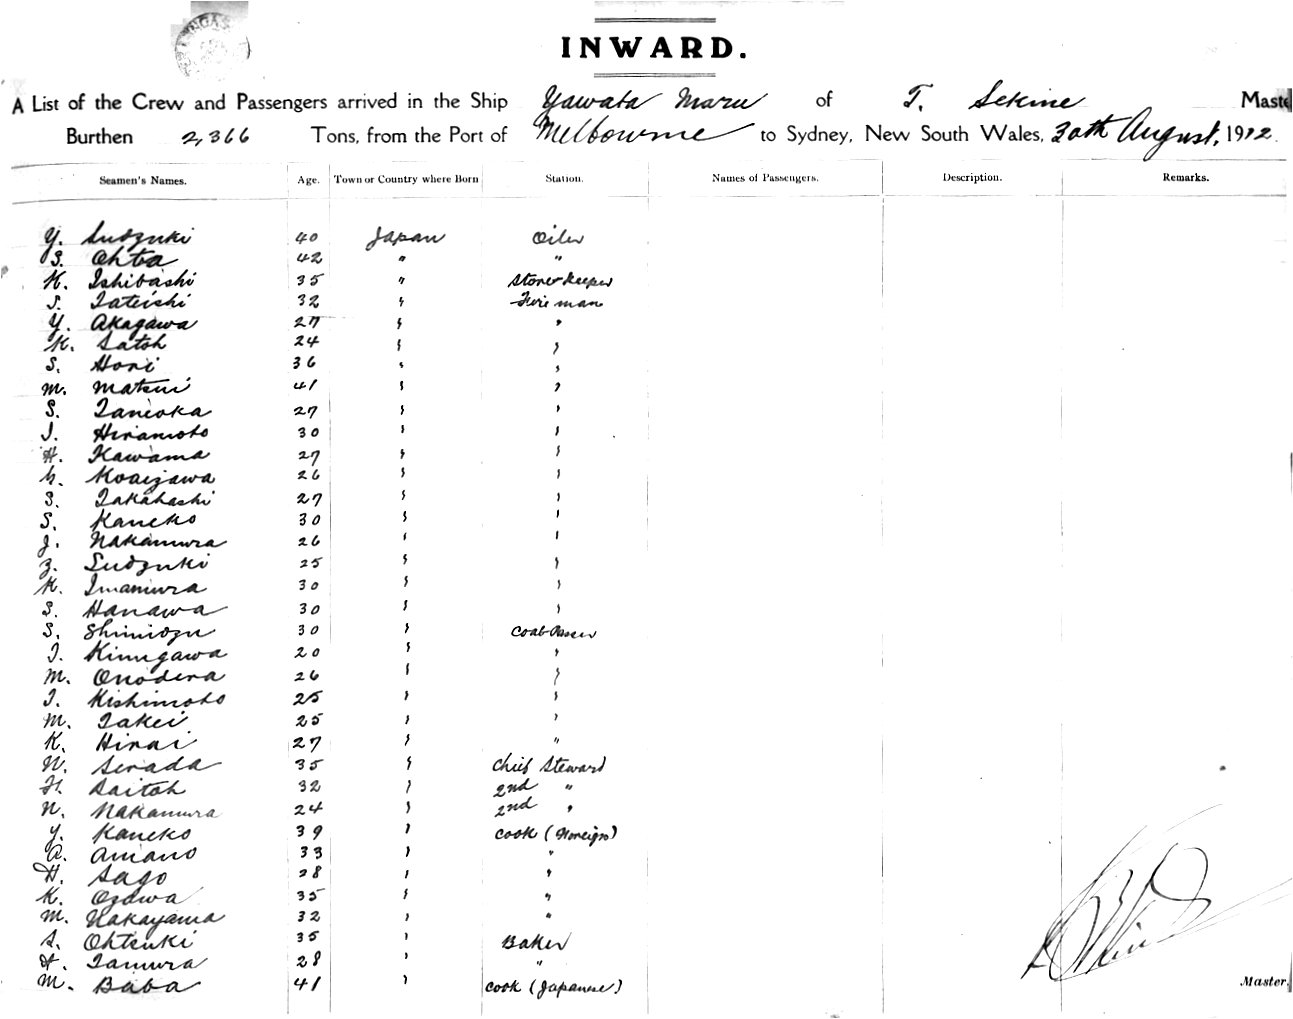 INWARD.
A List of the Crew and Passengers arrived in the Ship Yawata Maru of T. Sekine Maste
Burthen 2,366 Tons, from the Port of Melbourne to Sydney, New South Wales, 30th August, 1912
Seamen's Names. Age. Town or Country where Born Station. Names of Passengers. Description. Remarks.
Y. Sudzuki 40 Japan Oiler
S. Ohta 42 " "
K. Ishibashi 35 " Store Keeper
S. Tateishi 32 " Fireman
Y. Akagawa 27 " "
K. Satoh 24 " "
S. Hori 36 " "
M. Matsui 41 " "
S. Tanioka 27 " "
I. Hiramoto 30 " "
H. Kawama 27 " "
Koaizawa 26 " "
S. Takahashi 27 " "
S. Kaneko 30 " "
J. Nakamura 26 " "
Z. Sudzuki 25 " "
K. Imamura 30 " "
S. Hanawa 30 " "
S. Shimidzu 30 " Coal Passer
I. Kinugawa 20 " "
M. Onodera 26 " "
I. Kishimoto 25 " "
M. Takei 25 " "
K. Hirai 27 " "
N. Serada 35 " Chief Steward
H. Saitoh 32 " 2nd "
N. Nakamura 24 " 2nd "
Y. Kaneko 39 " Cook (Foreign)
A. Amano 33 " "
H. Sago 28 " "
K. Ozawa 35 " "
M. Nakayama 32 " "
S. Ohtsuki 35 " Baker
H. Tamura 28 " "
M. Baba 41 " Cook (Japanese)
Master.